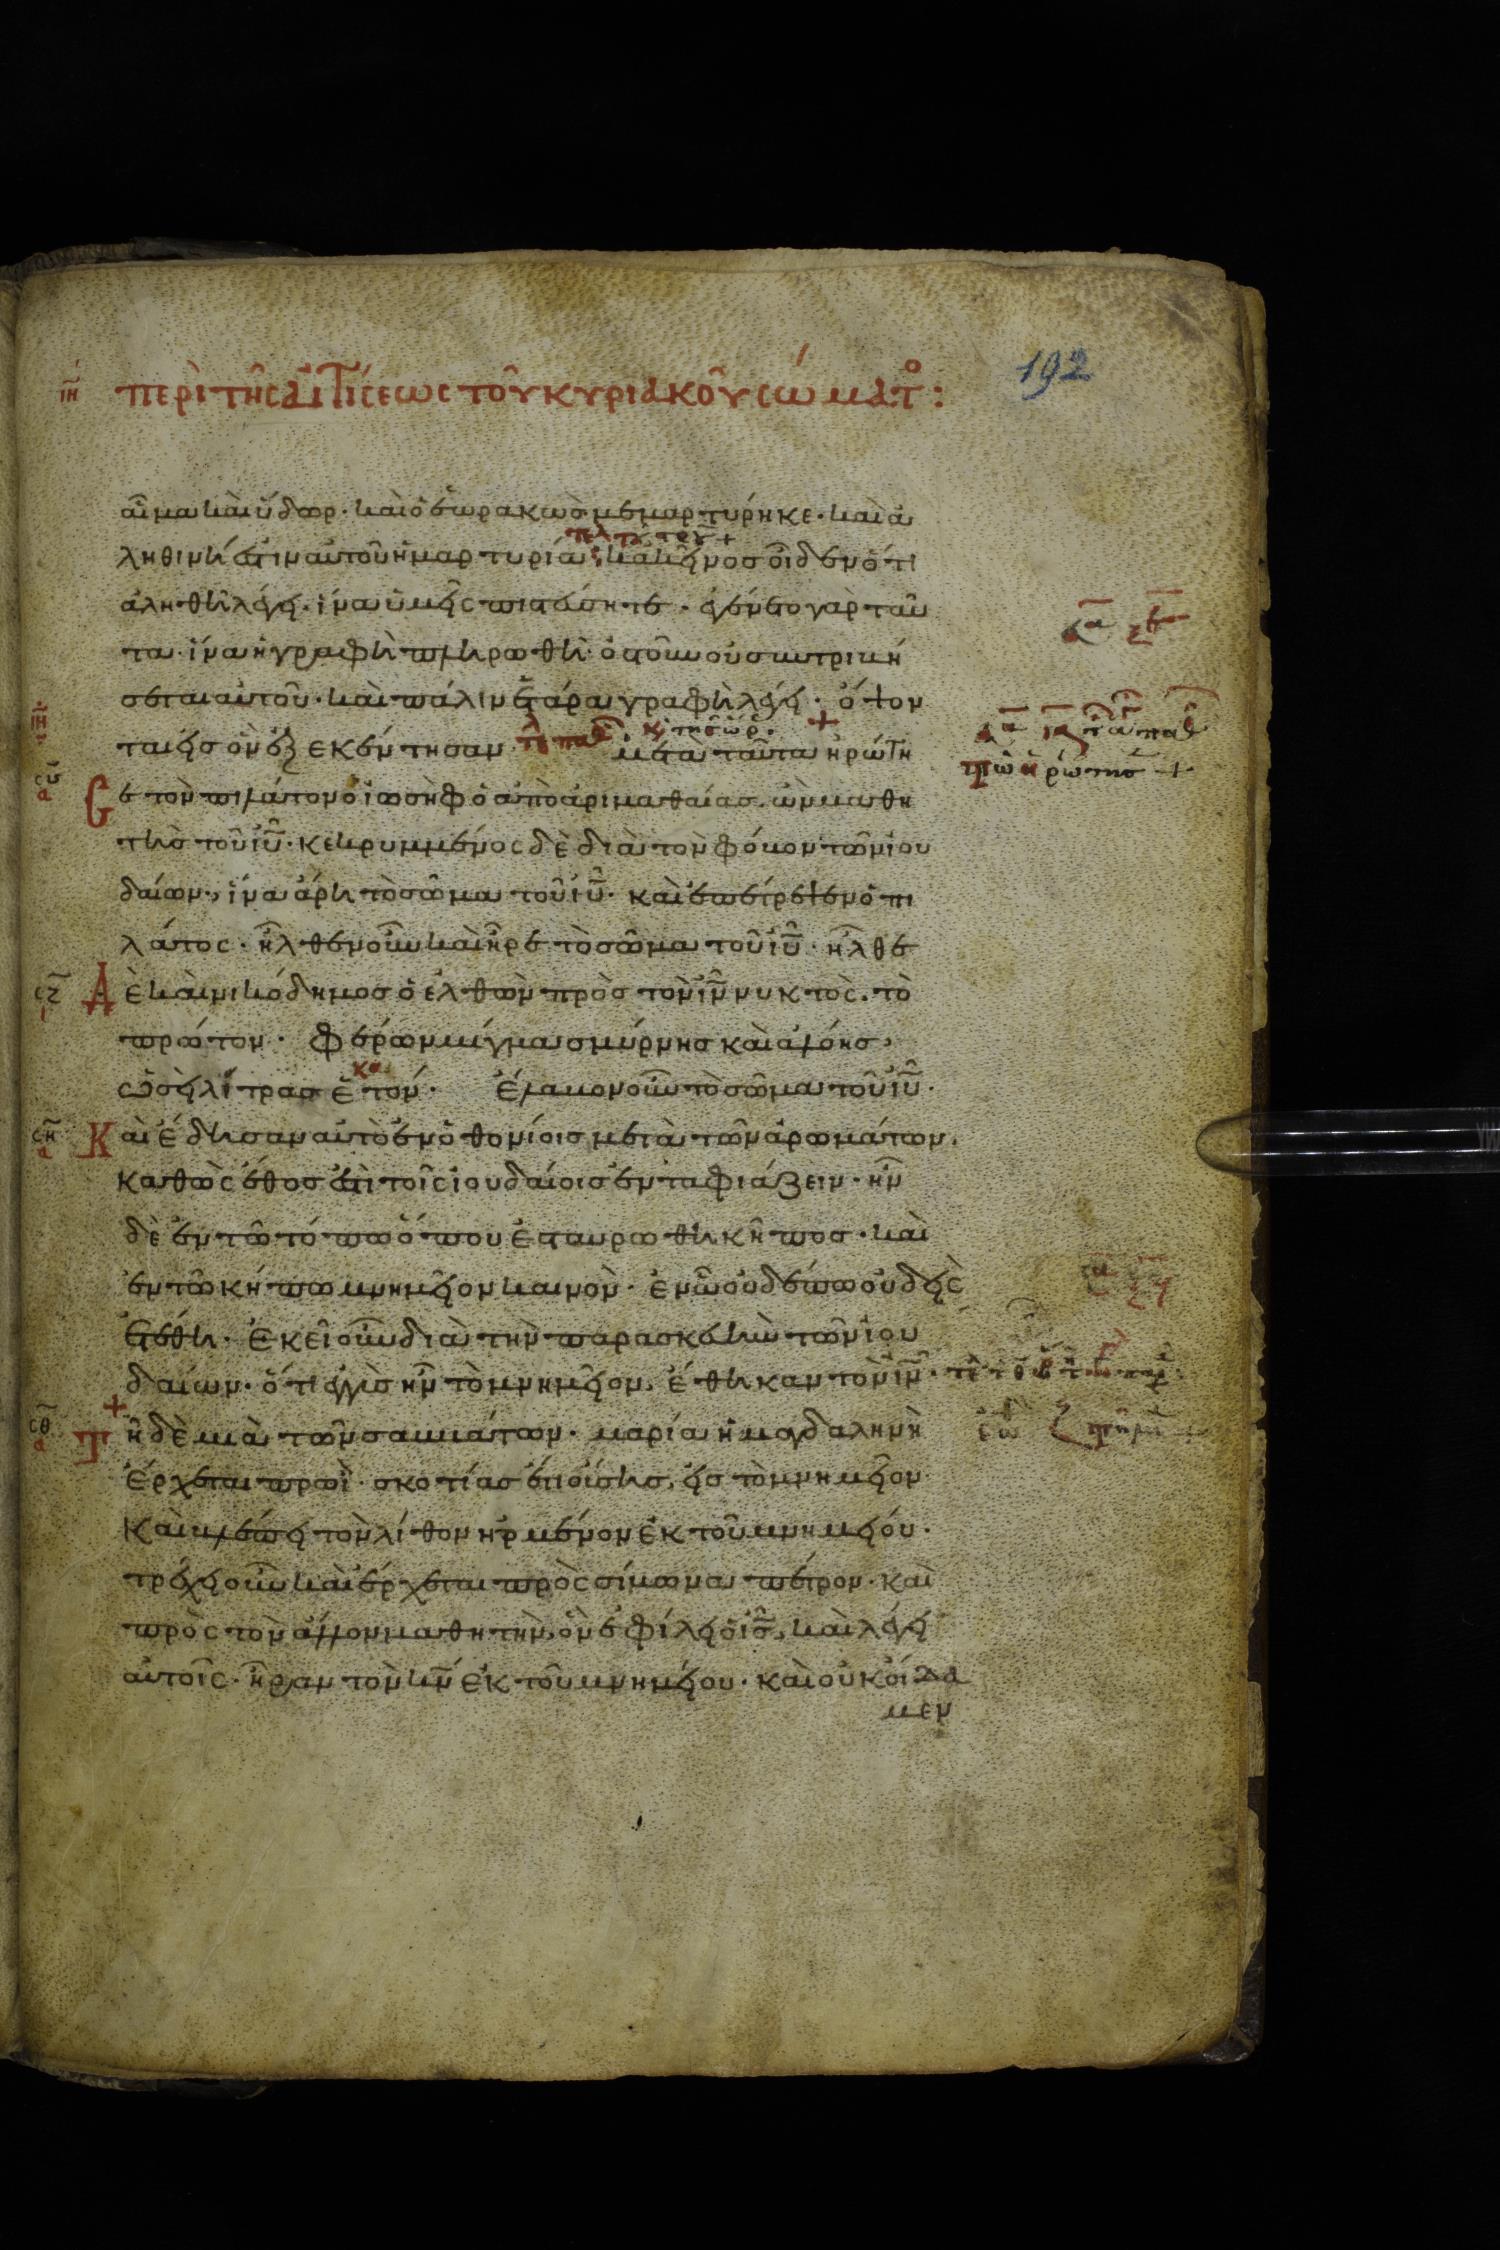 192
ιη περὶ τῆς αἰτίσεως τοῦ κυριακοῦ σώματο:
αἷμα καὶ ὕδωρ· καὶ ὁ ἑωρακὼς μεμαρτύρηκε· καὶ ἀ
ληθινὴ ἐστιν αὐτοῦ ἡ μαρτυρία· κἀκεῖνος οἶδεν ὅτι
ἀληθῆ λέγει· ἵνα ὑμεῖς πιστεύσητε· ἐγένετο γὰρ ταῦ
τα· ἵνα ἡ γραφὴ πληρωθῆ· ὀστοῦν οὐ συντριβή
σεται αὐτοῦ· καὶ πάλιν ἑτέρα γραφὴ λέγει· ὄψον
ται εἰς ὃν ἐξεκέντησαν· μετὰ ταῦτα ἠρώτη
σε τὸν πιλάτον ὁ ἰωσὴφ ὁ ἀπὸ ἀριμαθαίας· ὢν μαθη
τὴς τοῦ ἰῦ· κεκρυμμένος δὲ διὰ τὸν φόβον τῶν ἰου
δαίων, ἵνα ἄρη τὸ σῶμα τοῦ ἰῦ· καὶ ἐπέτρεψεν ὁ πι
λάτος· ἦλθεν οὖν καὶ ἦρε τὸ σῶμα τοῦ ἰῦ· ἦλθε
δὲ καὶ νικόδημος ὁ ἐλθὼν πρὸς τὸν ἰν νυκτὸς· τὸ
πρῶτον· φέρων μίγμα σμύρνης καὶ ἀλόης,
ὡσεὶ λίτρας ἑκατόν· ἔλαβον οὖν τὸ σῶμα τοῦ ἰῦ·
Καὶ ἔδησαν αὐτὸ ἐν ὀθονίοις μετὰ τῶν ἀρωμάτων,
καθὼς ἔθος ἐστὶ τοῖς ἰουδαίοις ἐνταφιάζειν· ἦν
δὲ ἐν τῶ τόπω ὅπου ἐσταυρώθη κῆπος· καὶ
ἐν τῶ κήπω μνημεῖον καινὸν· ἐν ὧ οὐδέπω οὐδεὶς
ἐτέθη· ἐκεῖ οὖν διὰ τὴν παρασκευὴν τῶν ἰου
δαίων· ὅτι ἐγγὺς ἦν τὸ μνημεῖον, ἔθηκαν τὸν ἰν·
Τῆ δὲ μιᾶ τῶν σαββάτων· μαρία ἡ μαγδαληνὴ
ἔρχεται πρωῒ· σκοτίας ἔτι οὔσης, εἰς τὸ μνημεῖον·
καὶ βλέπει τὸν λίθον ἠρμένον ἐκ τοῦ μνημείου·
τρέχει οὖν καὶ ἔρχεται πρὸς σίμωνα πέτρον· καὶ
πρὸς τὸν ἄλλον μαθητὴν, ὃν ἐφίλει ὁ ἰς, καὶ λέγει
αὐτοῖς· ἦραν τὸν κν ἐκ τοῦ μνημείου· καὶ οὐκ οἴδα
μεν